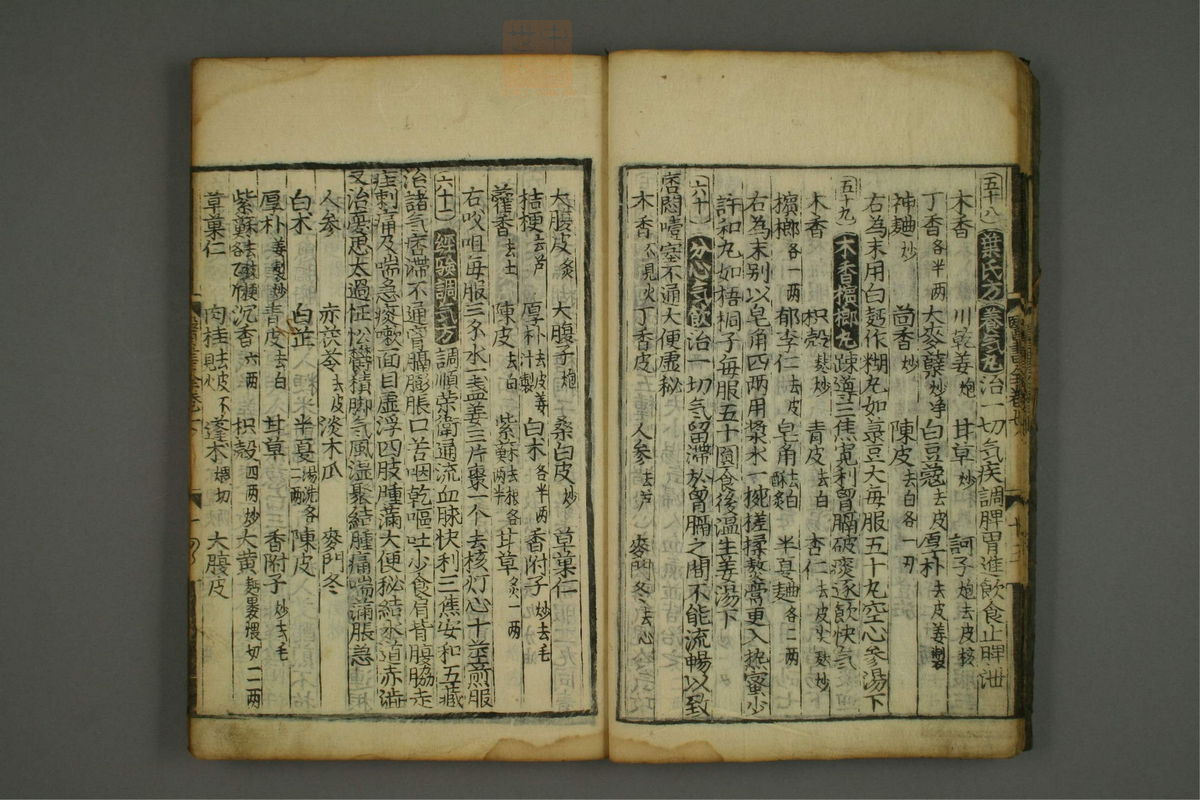 五十八 葉氏方養氣丸治一切气疾調脾胃進飲食止脾泄
木香 川乾姜炮 甘草 訶子炮去皮核
丁香各半兩 大麥蘖炒净 白豆蔻去皮 厚朴去皮姜製
神麯炒 茴香炒 陳皮去白各一刃
右為末用白麪作糊丸如菉豆大每服五十丸空心參湯下
五十九 木香檳榔丸 踈導三焦寬利胷膈破痰逐飲快气
木香 枳殼麩炒 青皮去白 杏仁去皮尖麩炒
檳榔各一兩 郁李仁去皮 皂角去白酥炙 半夏麯各二兩
右為末别以皂角四兩用漿水一椀搓揉熬膏更入热蜜少
許和丸如梧桐子每服五十圓食後溫生姜湯下
六十 分心气飲 治一切气留滞於胷膈之間不能流暢以致
痞悶噎塞不通大便虛秘
木香不見火 丁香皮 人参去芦 麥門冬去心
大腹皮炙 大腹子炮 桑白皮炒 草菓仁
桔梗去芦 厚朴去皮姜汁製 白术各半兩 香附子炒去毛
藿香去土 陳皮去白 紫蘇去根各一兩半 甘草炙一兩
右㕮咀每服三錢水一盞姜三片棗一个去核灯心十莖煎服
六十一 經驗調气方 調順荣衛通流血脉快利三焦安和五藏
治諸气痞滞不通胷膈膨脹口苦咽乾嘔吐少食肩背腹脇走
痊刺痛及喘急痰嗽面目虛浮四肢腫滿大便秘結水道赤澁
又治憂思太過怔忪鬱積脚气風湿聚結腫痛喘滿脹急
人参 赤茯苓去皮 淡木瓜 麥門冬
白术 白芷 半夏湯洗各一兩 陳皮
厚朴姜製炒 青皮去白 甘草 香附子炒去毛
紫蘇去枝梗 沉香六兩 枳殼四兩炒 大黄麪裹煨切二兩
草菓仁 肉桂去皮不見火 蓬术煨切 大腹皮